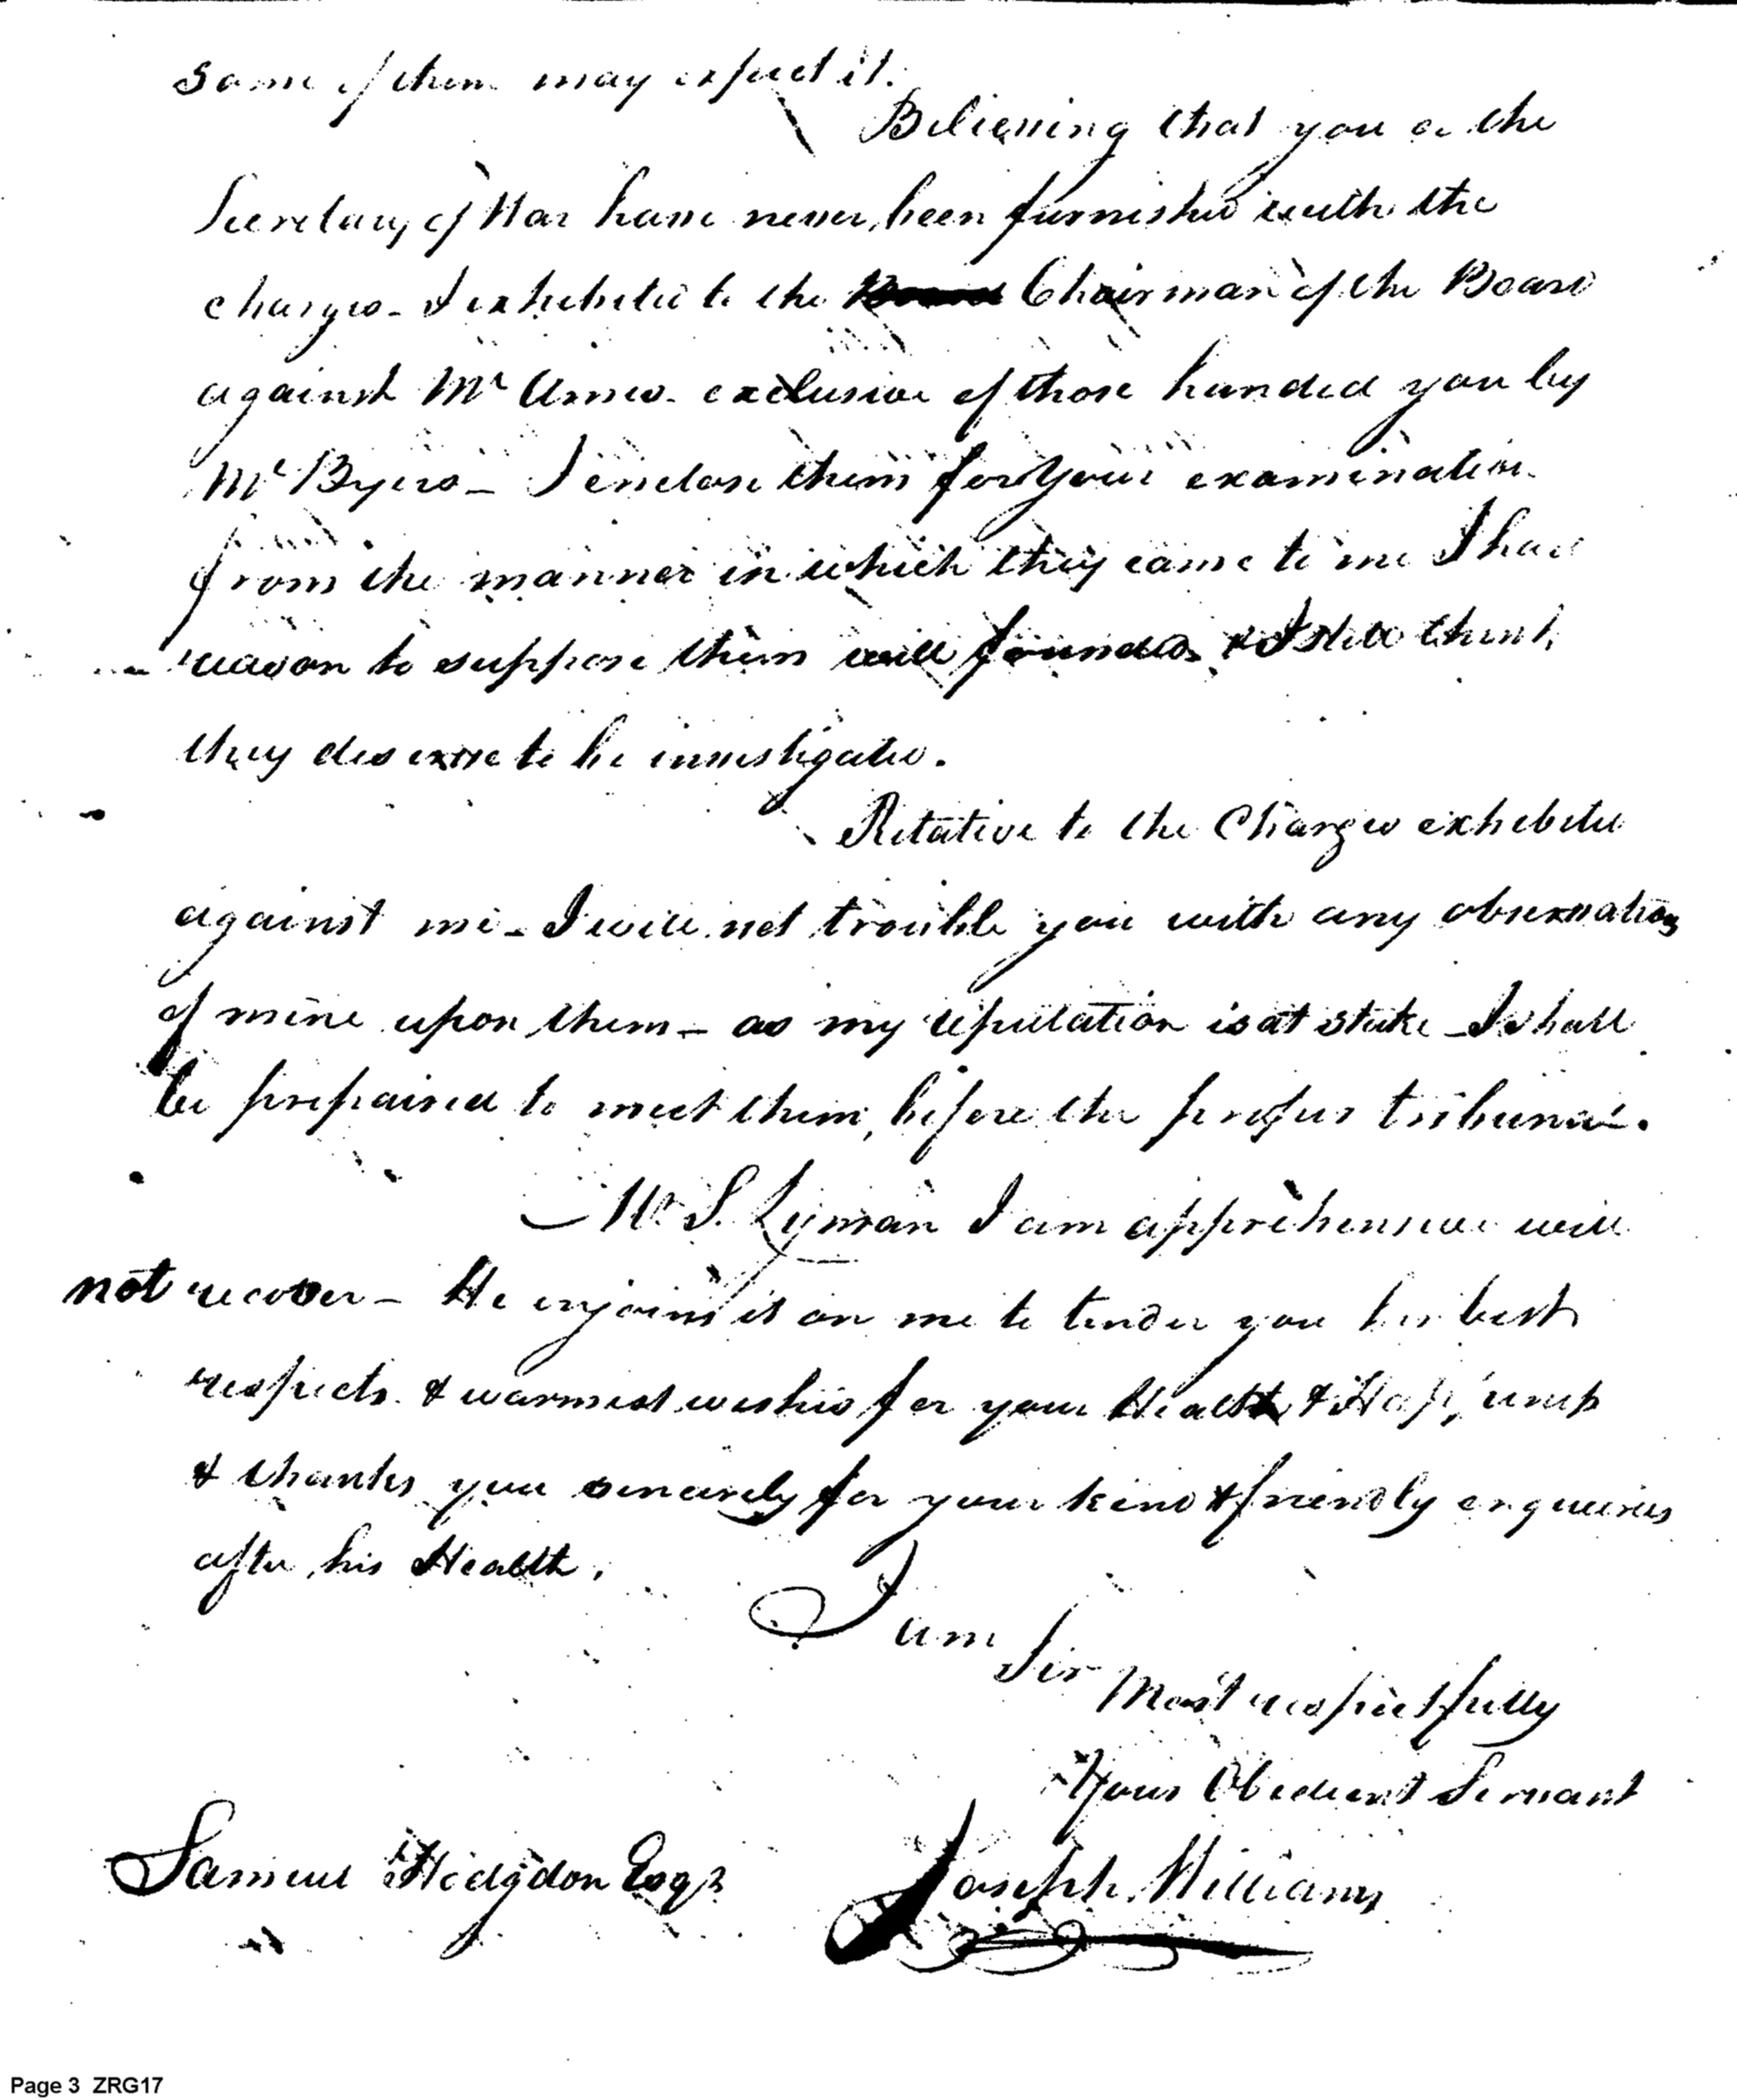 some of them may expect it.
Believing that you or the
Secretary of War have never been furnished with the
charges - I exhibited to the Board Chairman of the Board
against Mr Ames - exclusive of those handed you by
Mr Byers - I enclose them for your examination
from the manner in which they came to me I had
reason to suppose them well founded & I still think
they deserve to be investigated.
Relative to the Charges exhibited
against me - I will not trouble you with any observations
of mine upon them - as my reputation is at stake - I shall
be prepaired to meet them, before the proper tribunal.
- Mr S. Lyman I am apprehensive will
not recover - He enjoins it on me to tender you his best
respects & warmest wishes for your Health & Happiness
& thanks you sincerely for your kind & friendly enquiries
after his Health.
I am
Sir
Most respectfully
Your Obedient Servant
Samuel Hodgdon Esqr Joseph Williams
Page 3 ZRG17